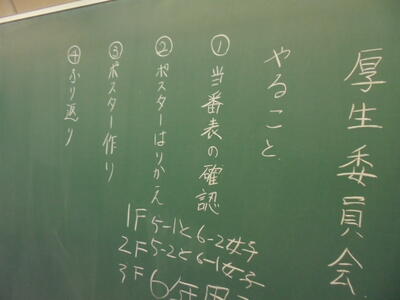 厚生委員会
やること
①当番表の確認
②ポスターはりかえ
1F 5-1と6-2女子
2F 5-2と6-1女子
3F 6年男
③ポスター作り
④ふり返り